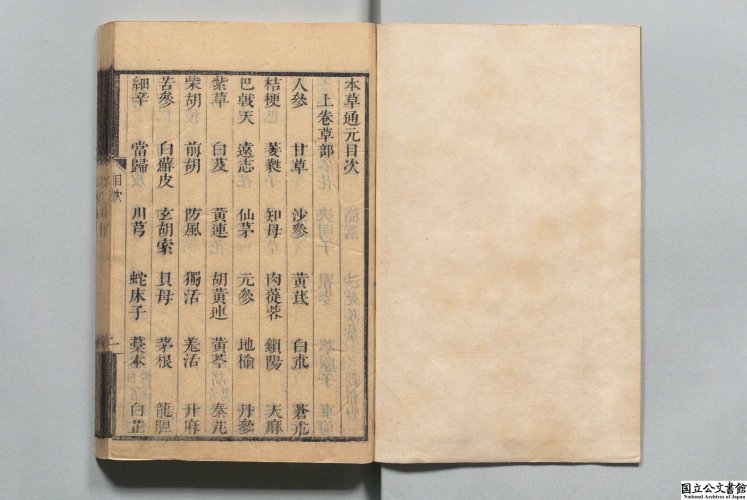 本草通元目次
上卷草部
人參 甘草 沙參 黃芪 白朮 蒼朮
桔梗 萎蕤 知母 肉蓯蓉 鎖陽 天麻
巴戟天 遠志 仙茅 元參 地榆 丹參
紫草 白芨 黃連 胡黃連 黃芩 秦艽
柴胡 前胡 防風 獨活 羌活 升麻
苦參 白蘚皮 玄胡索 貝母 茅根 龍胆
細辛 當歸 川芎 蛇床子 藁本 白芷
目次
一
国立公文書館
National Archives of Japan